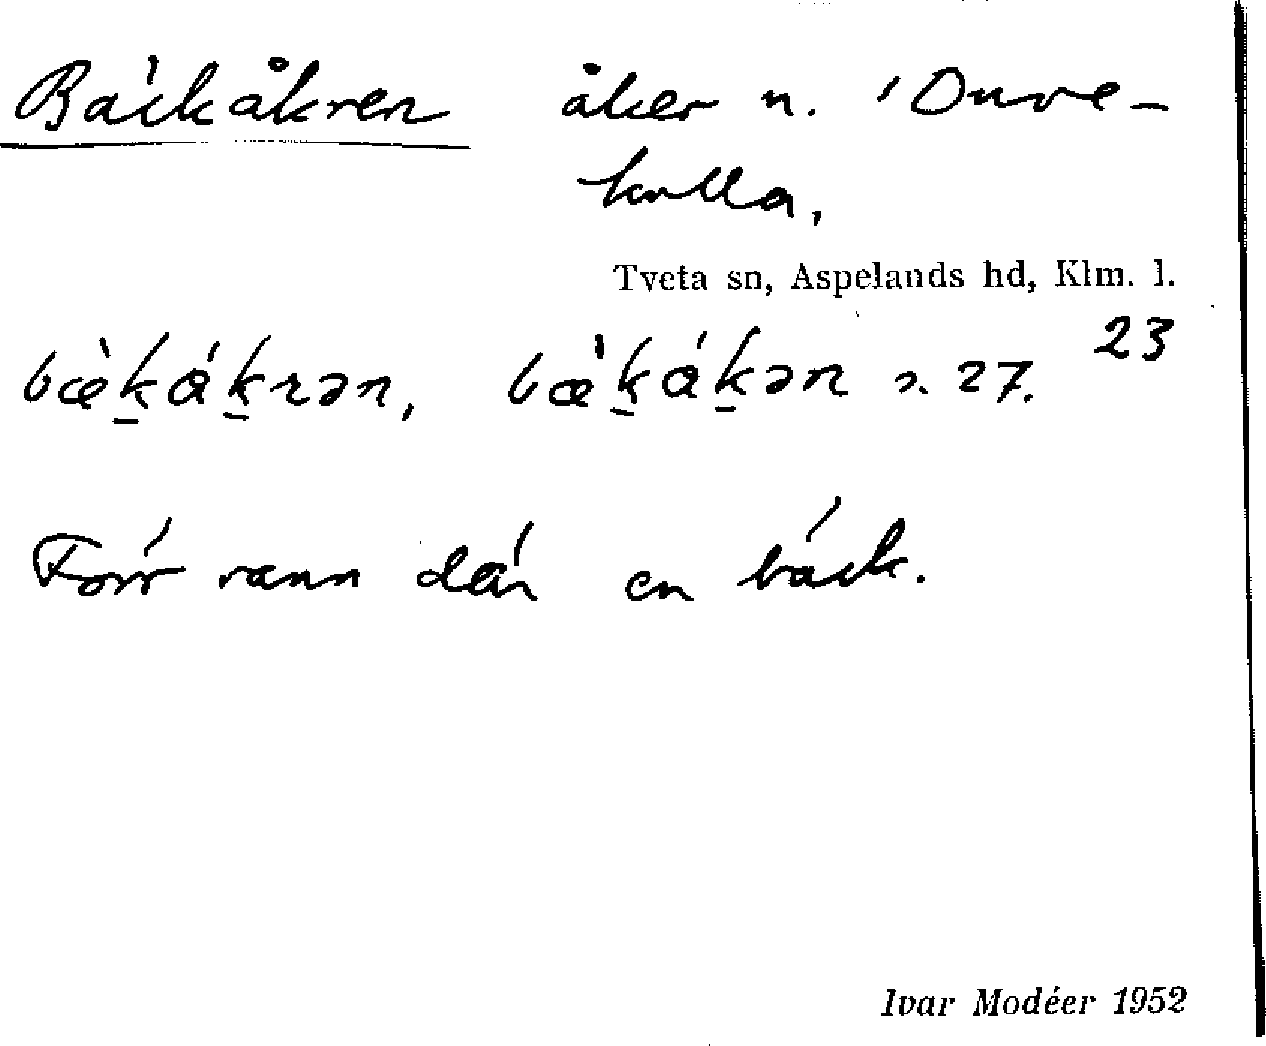 Bäckåkren åker n. 'Duve-
kulla,
Tveta sn, Aspelands hd, Klm. l.
23
bæ̀k̠åḱ̠rən, bæ̀k̠åḱ̠ən s. 27.
Förr rann där en bäck.
Ivar Modéer 1952